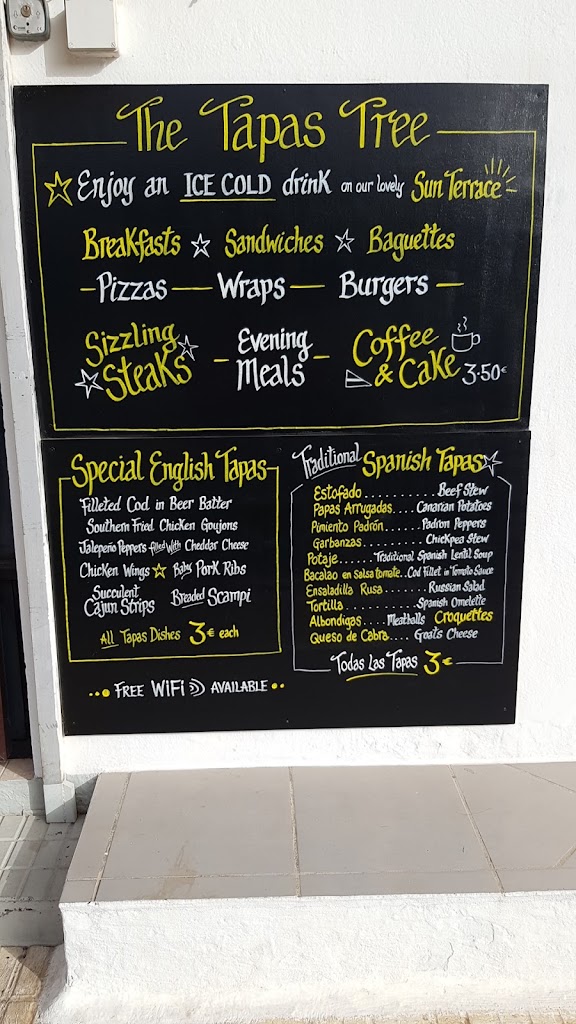 The Tapas Tree
Enjoy an ICE COLD drink on our lovely Sun Terrace
Breakfasts Sandwiches Baguettes
Pizzas Wraps Burgers
Sizzling Steaks Evening Meals Coffee & Cake 3.50€
Special English Tapas
Filleted Cod in Beer Batter
Southern Fried Chicken Goujons
Jalepeño Peppers filled With Cheddar Cheese
Chicken Wings Baby Pork Ribs
Succulent Cajun Strips Breaded Scampi
All Tapas Dishes 3€ each
FREE WiFi AVAILABLE
Traditional Spanish Tapas
Estofado.......... Beef Stew
Papas Arrugadas.... Canarian Potatoes
Pimiento Padrón....... Padron Peppers
Garbanzas........... Chickpea Stew
Potaje........Traditional Spanish Lentil Soup
Bacalao en Salsa tomate...Cod Fillet in Tomato Sauce
Ensaladilla Rusa........Russian Salad
Tortilla............Spanish Omelette
Albondigas.... Meatballs Croquettes
Queso de Cabra.... Goats Cheese
Todas Las Tapas 3€